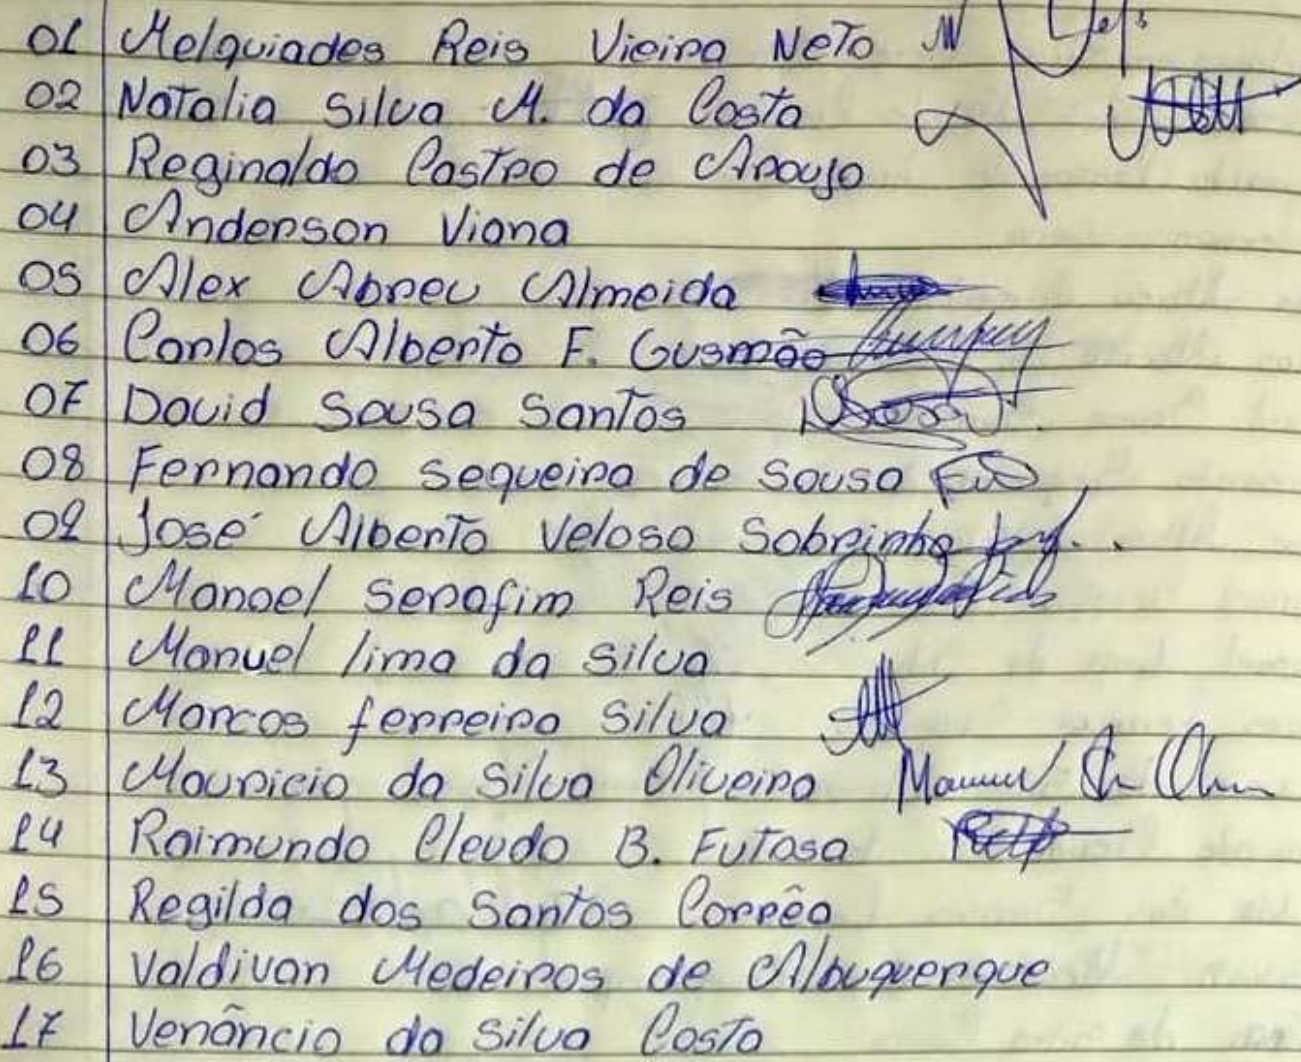 01 Melquiades Reis Vieira Neto
02 Natalia Silva M. da Costa
03 Reginaldo Castro de Araujo
04 Anderson Viana
05 Alex Abreu Almeida
06 Carlos Alberto F. Gusmão
07 David Sousa Santos
08 Fernando Sequeira de Sousa
09 José Alberto Veloso Sobrinho
10 Manoel Serafim Reis
11 Manuel lima da Silva
12 Marcos ferreira Silva
13 Mauricio da Silva Oliveira
14 Raimundo Cleudo B. Futosa
15 Regilda dos Santos Corrêa
16 Valdivan Medeiros de Albuquerque
17 Venâncio da Silva Costa